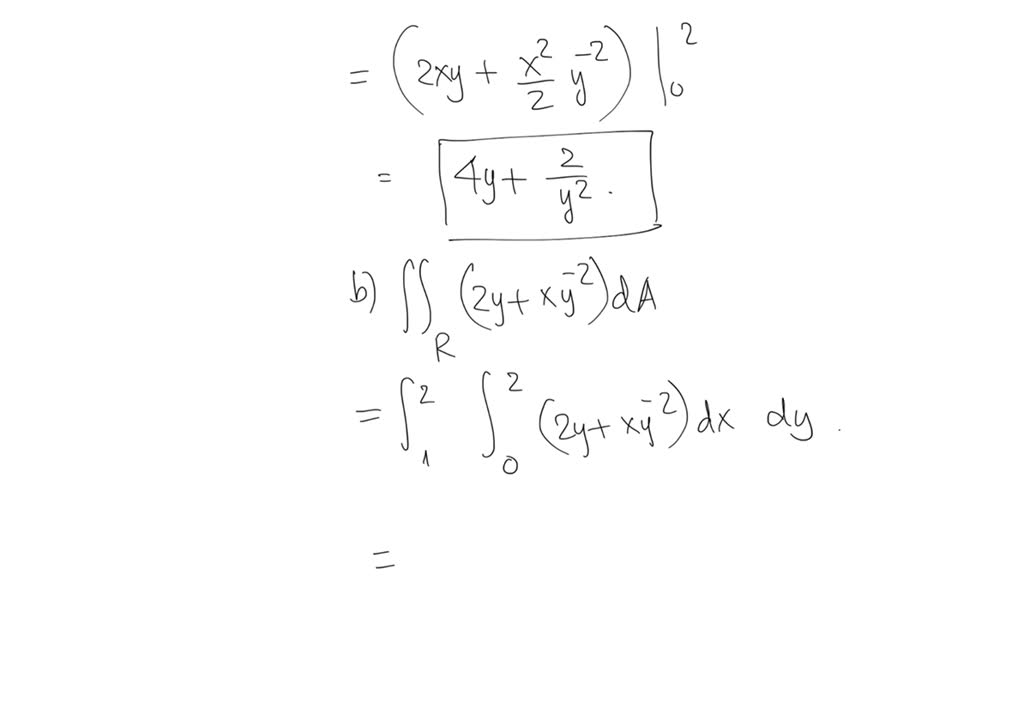 = (2xy + x²/2 y⁻²) |₀²
= 4y + 2/y² .
b) ∬_R (2y + xy⁻²) dA
= ∫₁² ∫₀² (2y + xy⁻²) dx dy .
=